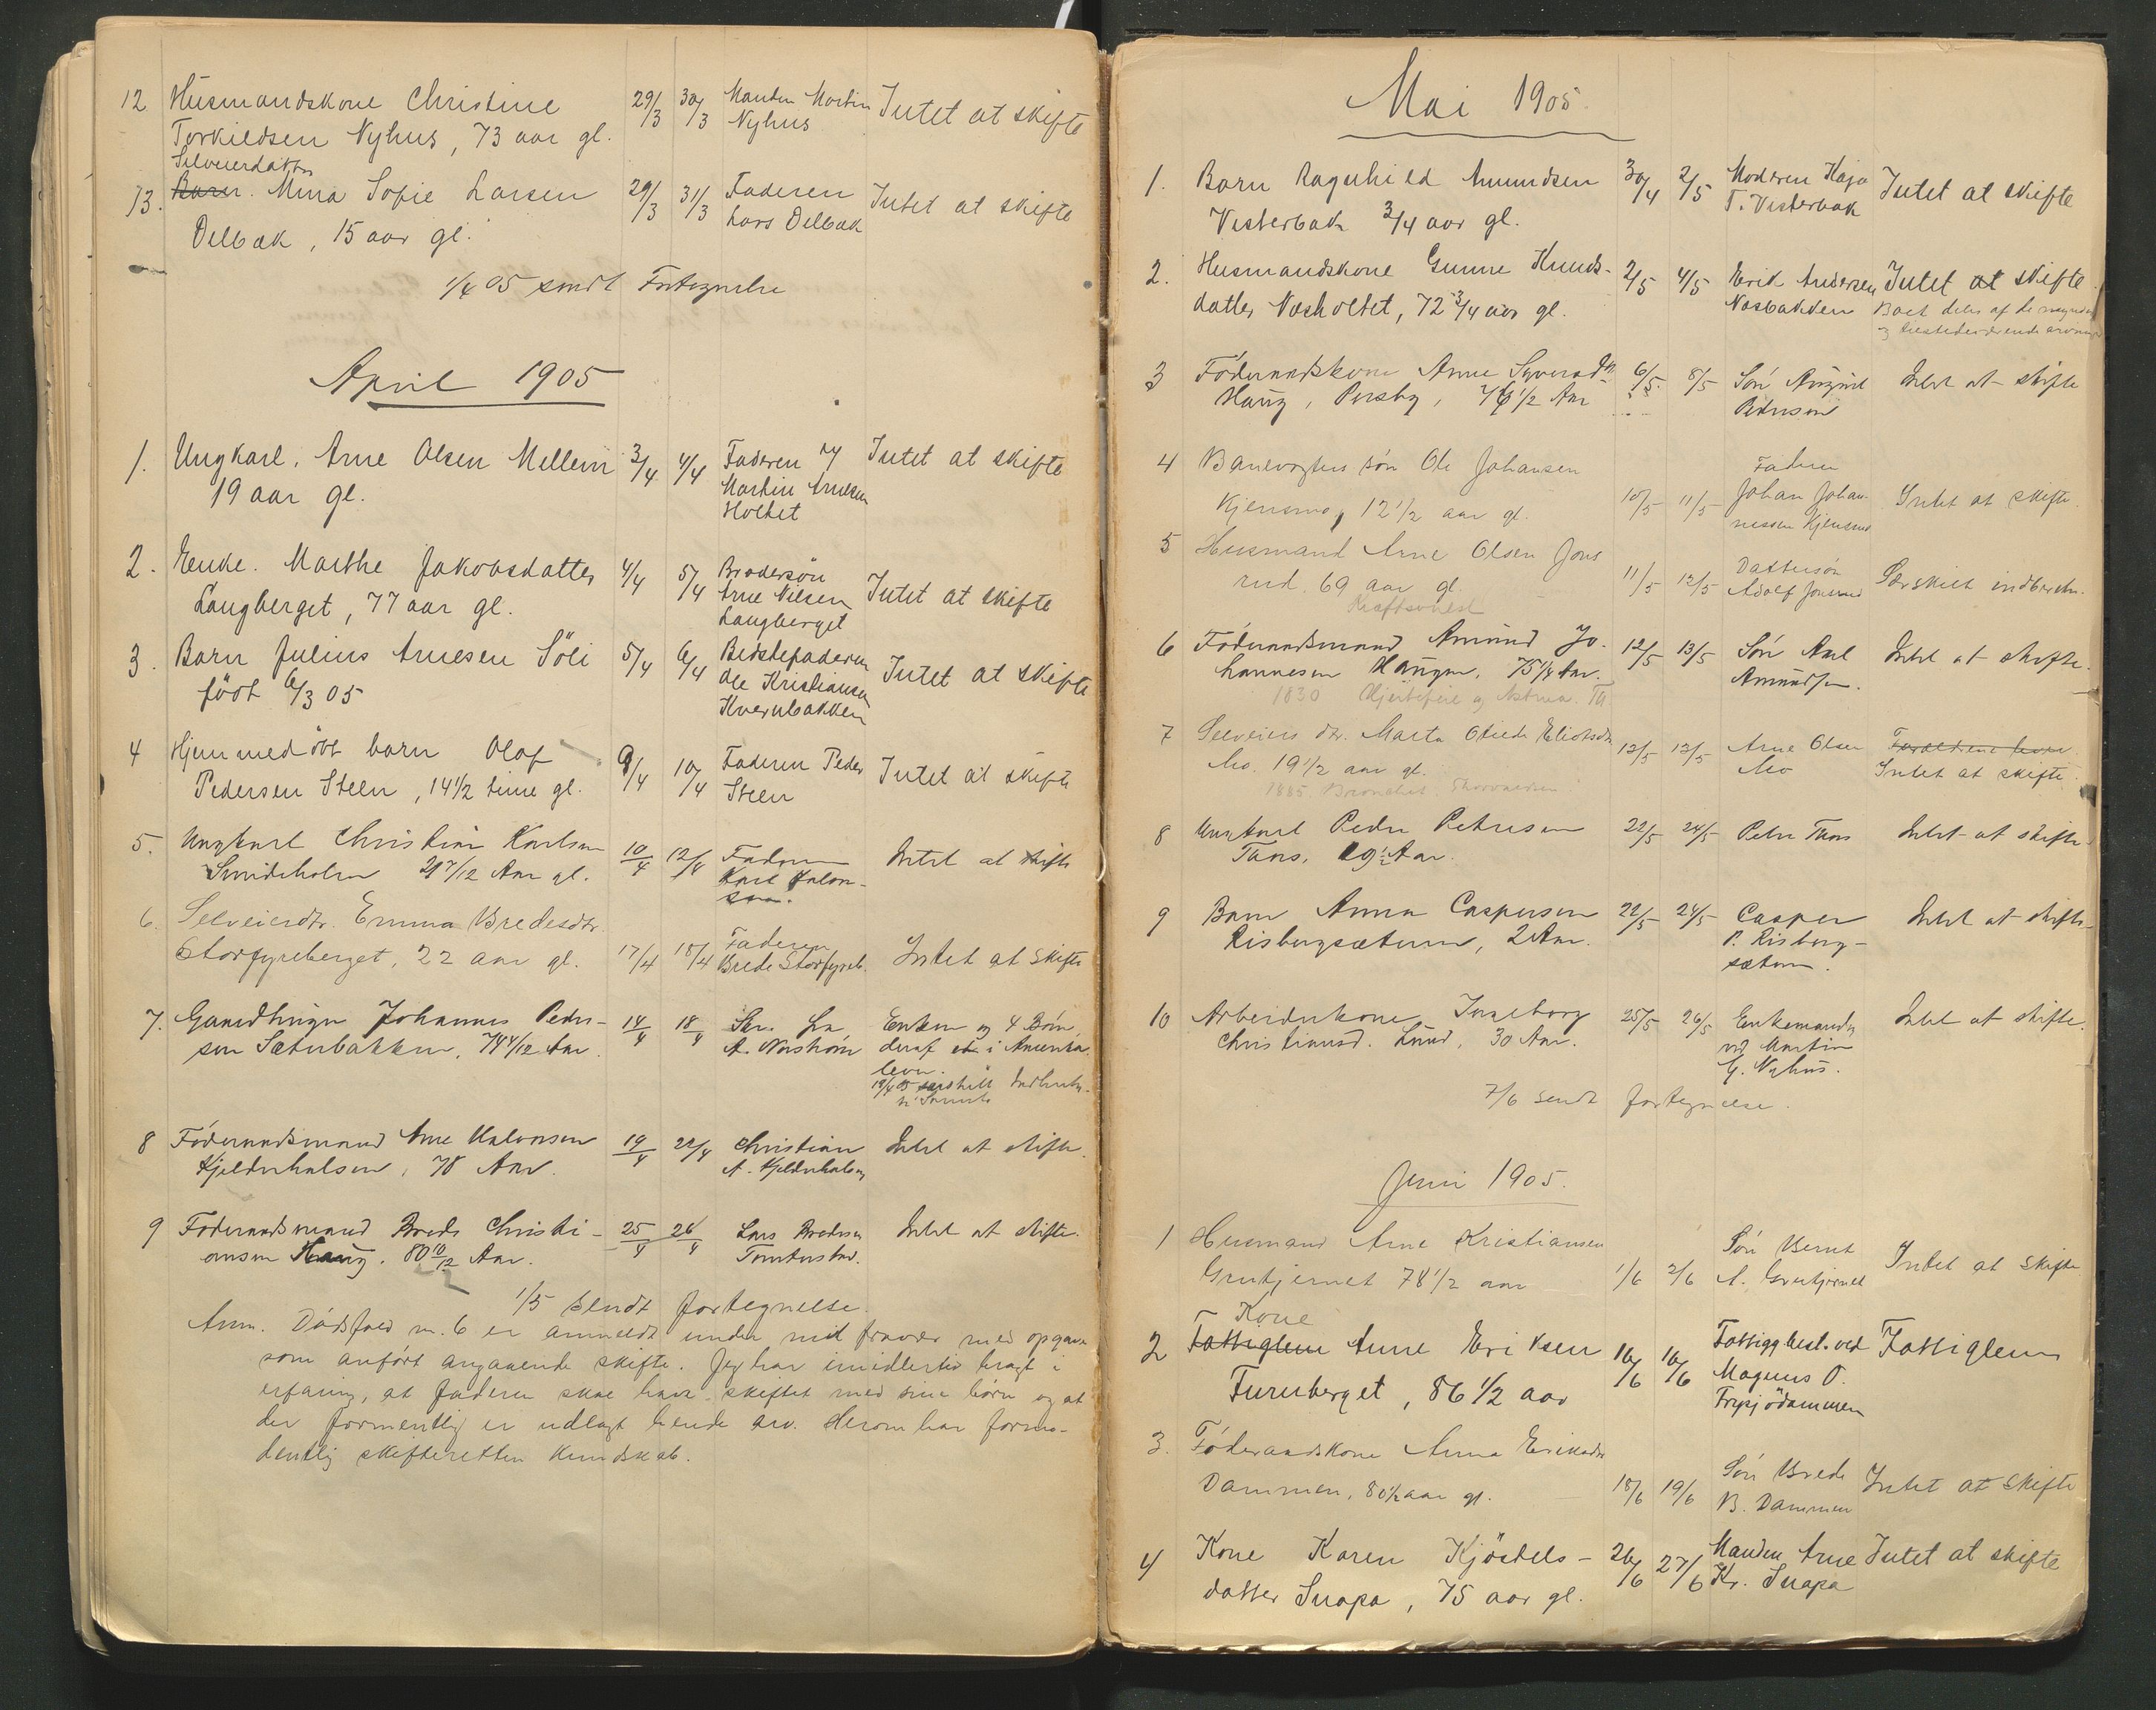 12 Husmandskone Christine 29/3 30/3 Manden Martin Intet at skifte
Torkildsen Nyhus, 73 aar gl. Nyhus
Selveierdatter
13. Barn. Mina Sofie Larsen 29/3 31/3 Faderen Intet at skifte
Delbæk, 15 aar gl. Lars Delbæk
1/4 05 sendt Fortegnelse
April 1905
1. Ungkarl. Arne Olsen Mellem 3/4 4/4 Faderen v/ Intet at skifte
19 aar gl. Martin Arnesen
Holtet
2. Enke. Marthe Jakobsdatter 4/4 5/4 Brodersön Intet at skifte
Langberget, 77 aar gl. Arne Nilsen
Langberget
3. Barn Julius Arnesen Söli 5/4 6/4 Bedstefaderen Intet at skifte
födt 6/3 05 Ole Kristiansen
Kvernbakken
4 Hjemmedöbt barn Olaf 9/4 10/4 Faderen Peder Intet at skifte
Pedersen Steen, 14 1/2 time gl. Steen
5. Ungkarl Christian Karlsen 10/4 12/4 Faderen Intet at skifte
Smideholen 21 7/12 Aar gl. Karl Halvor-
sen.
6. Selveierdtr. Emma Bredesdtr.
Storfyreberget, 22 aar gl. 17/4 18/4 Faderen Intet at skifte
Brede Storfyreb.
7. Gaardbruger Johannes Peder- 14/4 18/4 Enken og 4 Börn,
sen Sæterbakken, 74 4/12 Aar. A. Norström deraf et i Amerika
lever.
19/4 05 særskilt Indberetn.
8 Föderaadsmand Arne Halvorsen 19/4 22/4 Christian Intet at skifte.
Kjelderhalsen, 78 Aar. A. Kjelderhalsen
9 Föderaadsmand Brede Christi- 25/4 26/4 Lars Bredesen Intet at skifte.
ansen Haug. 80 10/12 Aar.
1/5 sendt fortegnelse.
Anm. Dödsfald nr. 6 er anmeldt under mit fravær med opgave
som anfört angaaende skifte. Jeg har imidlertid bragt i
erfaring, at faderen skal have skiftet med sine börn og at
der formentlig er udlagt hende arv. Herom har formo-
dentlig skifteretten kundskab.
Mai 1905.
1. Barn Ragnhild Amundsen 30/4 2/5 Moderen Kaja Intet at skifte
Vesterbak 3/4 aar gl. T. Vesterbak
2. Husmandskone Gunne Knuds- 2/5 4/5 Erik Andersen Intet at skifte.
datter Næsholtet, 72 3/4 aar gl. Næsbakken Boet deles af de myndige
og tilstedeværende arvinger
3 Föderaadskone Anne Syversdtr. 6/5. 8/5 Sön August Intet at skifte
Haug, Persby, 76 1/2 Aar Pedersen
4 Banevogters sön Ole Johansen Faderen
Kjensmo, 12 1/2 aar gl. 10/5 11/5 Johan Johan- Intet at skifte.
nessen Kjensmo
5 Husmand Arne Olsen Jons
rud. 69 aar gl. 11/5 12/5 Dattersön Særskilt indberetn.
Adolf Jonsrud
6 Föderaadsmand Amund Jo- 12/5 13/5 Sön Axel Intet at skifte.
hannesen Haugen, 75 1/4 Aar. Amundsen.
1830 Hjertefeil og Astma.
7 Selveiers dtr. Marta Otilde Eliasdtr. 12/5 12/5 Arne Olsen Forældrene lever
Mo. 19 1/2 aar gl. Mo Intet at skifte.
1885. Thorvaldsen.
8 Ungkarl Peder Petersen 22/5 24/5 Peter Thors Intet at skifte.
Thors. 19 1/2 Aar.
9 Barn Anna Caspersen 22/5 24/5 Casper Intet at skifte.
Risbergsæteren, 2 Aar. P. Risberg-
sæteren.
10 Arbeiderkone Ingeborg 25/5 26/5 Enkemanden Intet at skifte.
Christiansd. Lund. 30 Aar. ved Martin
G. Nyhus.
7/6 sendt fortegnelse.
Juni 1905.
1 Husmand Arne Kristiansen Sön Bernt
Grutjernet 78 1/2 aar 1/6 2/6 A. Grutjernet Intet at skifte
Kone
2 Fattiglem Anne Eriksen 16/6 16/6 Fattiggbest. ved Fattiglem
Furuberget, 86 1/2 aar Magnus O.
Frysjödammen
3. Föderaadskone Anna Eriksdtr
Dammen, 80 1/2 aar gl. 18/6 19/6 Sön Brede Intet at skifte
B. Dammen
4 Kone Karen Kjöstels- 26/6 27/6 Manden Arne Intet at skifte
datter Snapa, 75 aar gl. Kr. Snapa